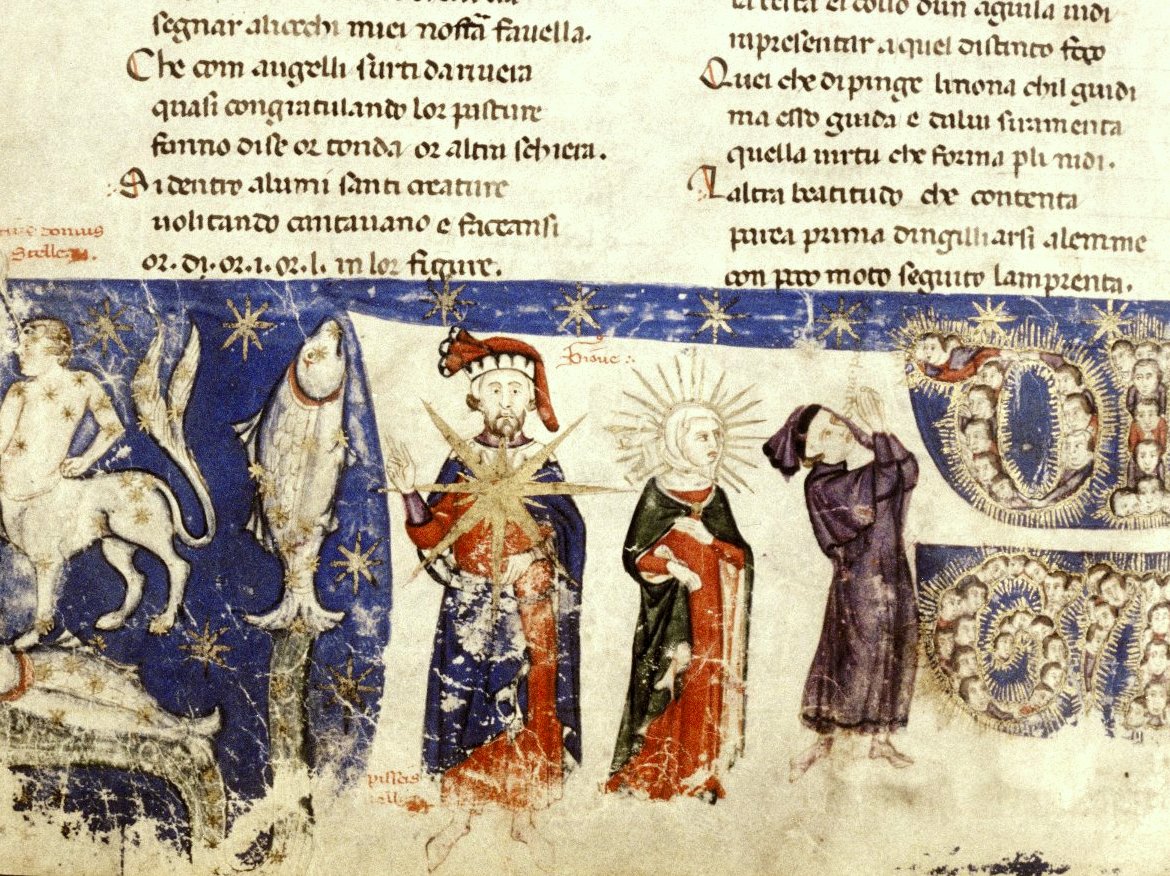 segnar aliocchi miei nostra fauella.
Che com augelli surti dariuera
quasi congratulando lor pasture
fanno dise or tonda or altra schiera.
Si dentro alumi sante creature
uolitando cantauano e faceansi
or. d. or. i. or. l. in lor figure.
stelle
la testa el collo dun aguila uidi
inpresentar aquel distinto foco
Quei che dipinge li non a chil guidi
ma esso guida e da lui si ramenta
quella uirtu che forma p li nidi.
Laltra beatitudo che contenta
parea prima dingilliarsi alemme
con poco moto seguito lamprenta.
Gioue
pisscis